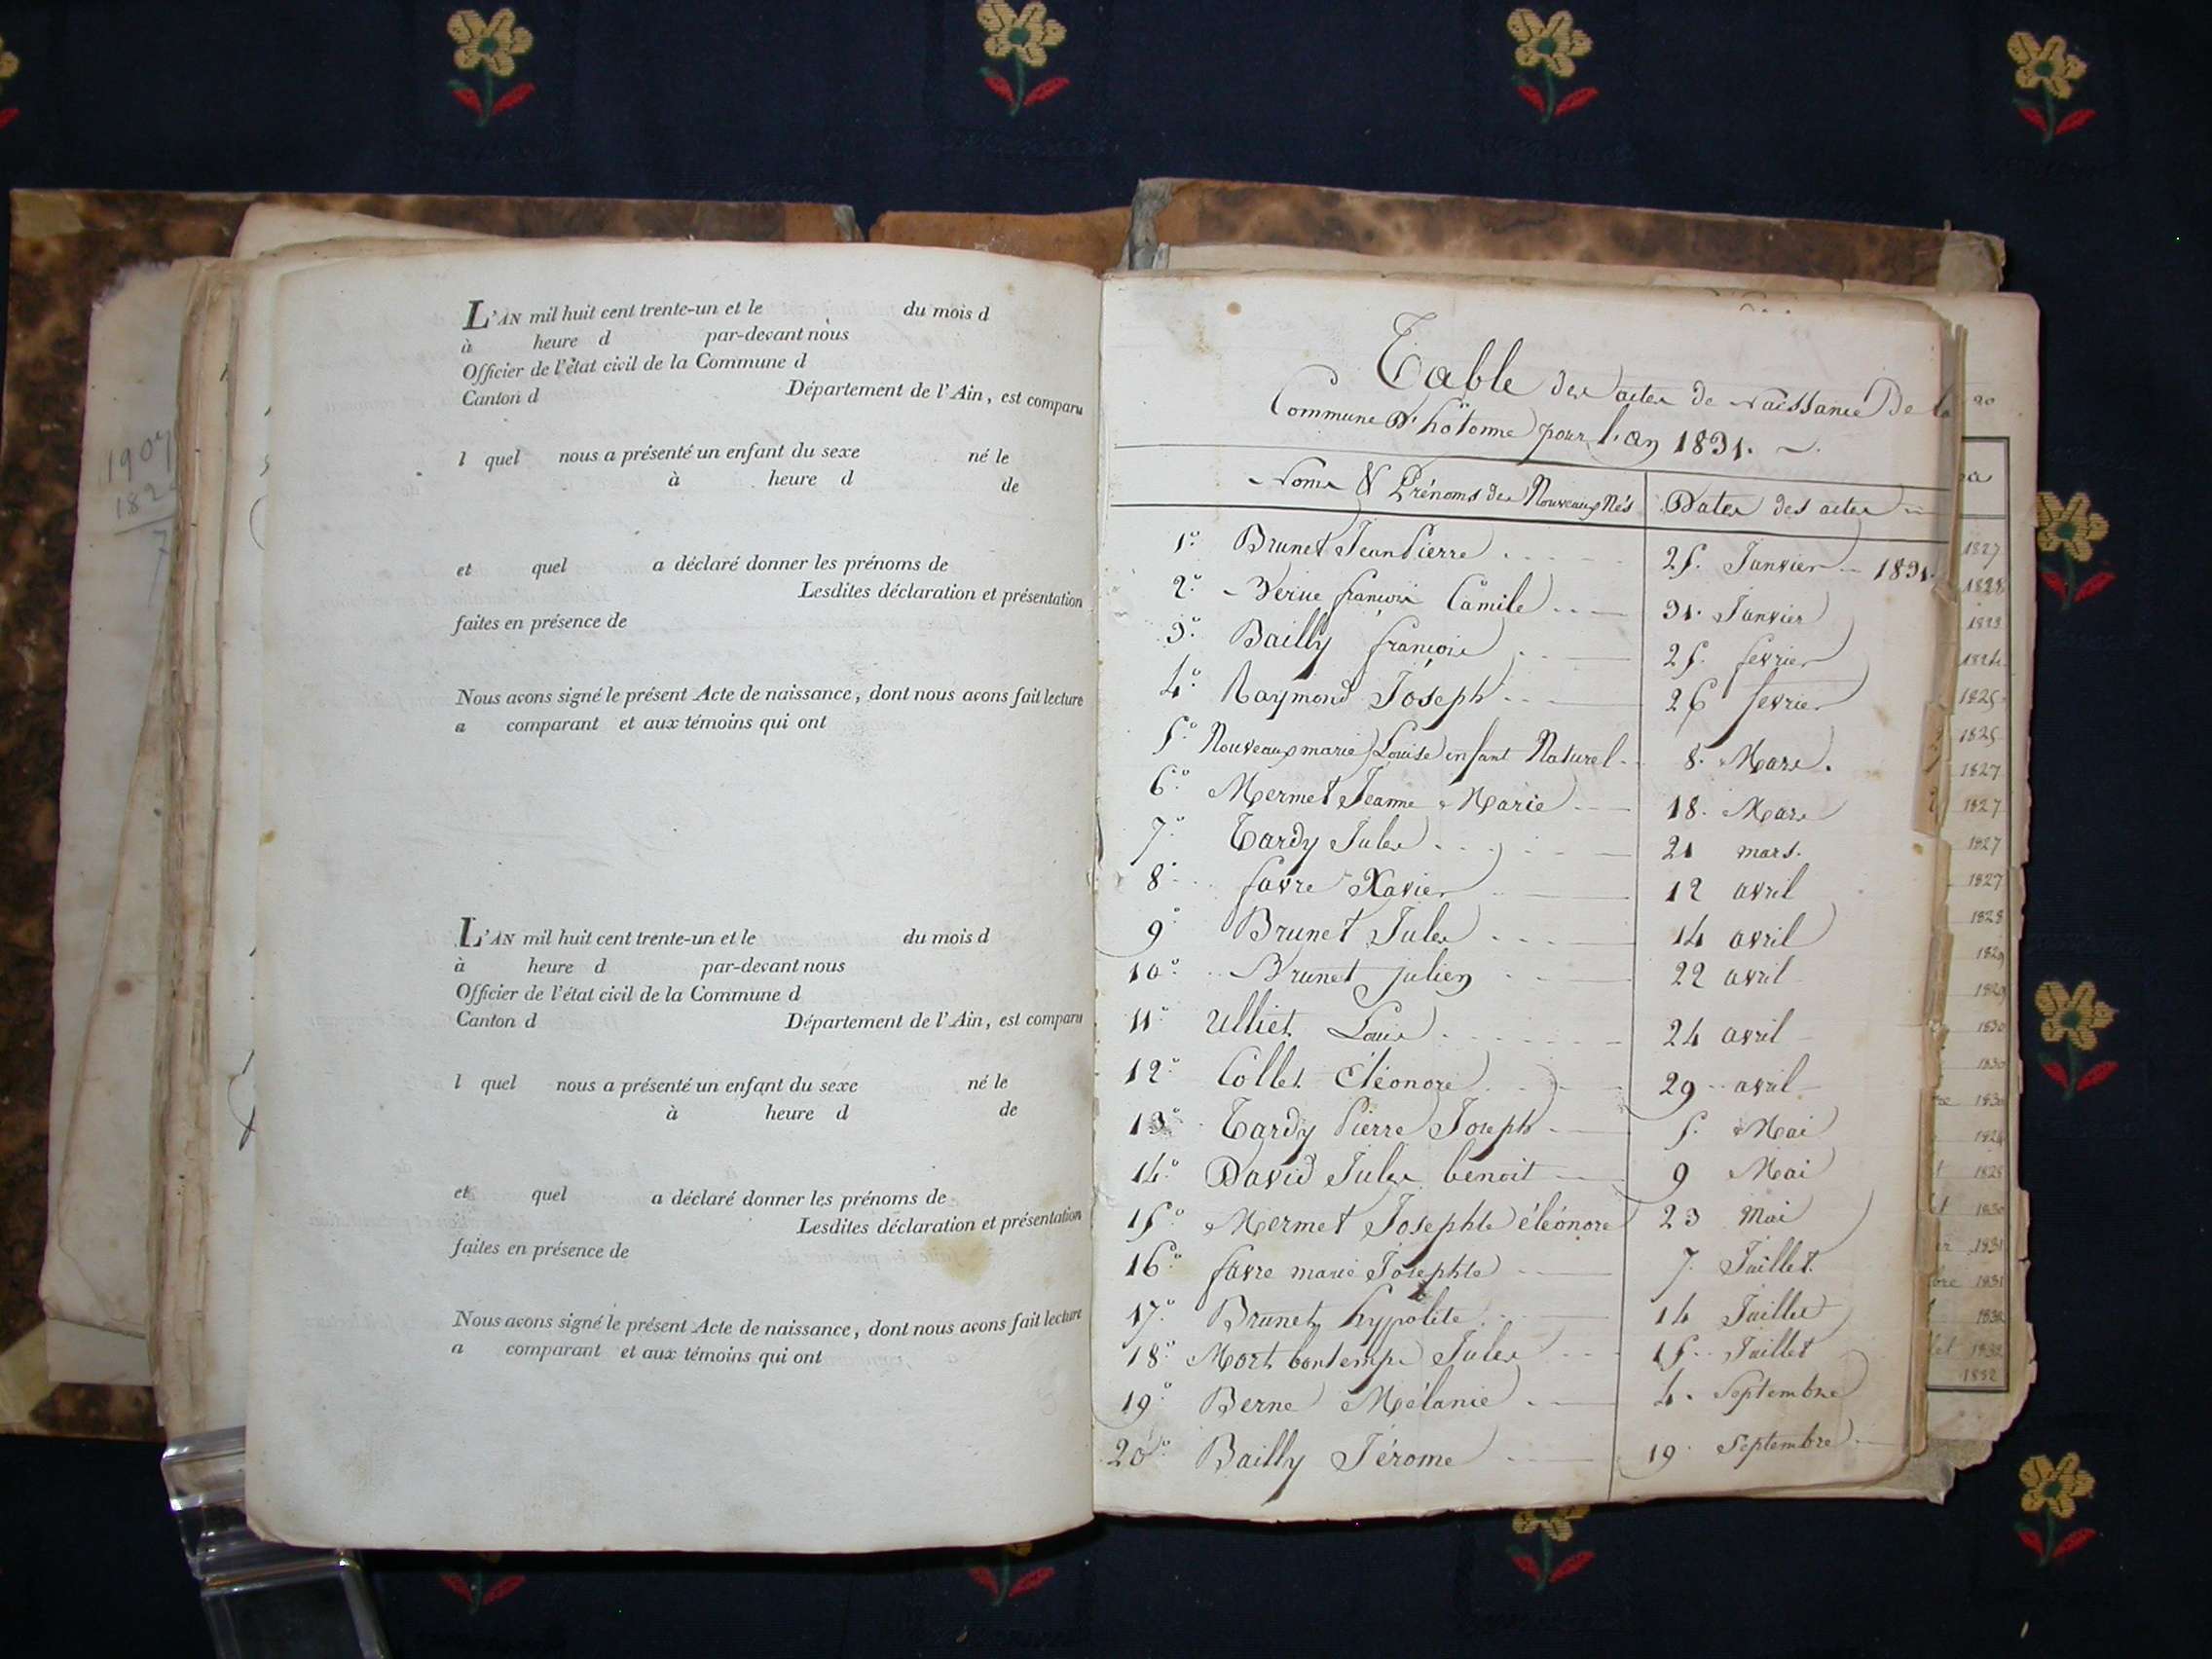 L'AN mil huit cent trente-un et le du mois d
à heure d par-devant nous
Officier de l'état civil de la Commune d
Canton d Département de l'Ain, est comparu
l quel nous a présenté un enfant du sexe né le
à heure d de
et quel a déclaré donner les prénoms de
Lesdites déclaration et présentation
faites en présence de
Nous avons signé le présent Acte de naissance, dont nous avons fait lecture
a comparant et aux témoins qui ont
L'AN mil huit cent trente-un et le du mois d
à heure d par-devant nous
Officier de l'état civil de la Commune d
Canton d Département de l'Ain, est comparu
l quel nous a présenté un enfant du sexe né le
à heure d de
et quel a déclaré donner les prénoms de
Lesdites déclaration et présentation
faites en présence de
Nous avons signé le présent Acte de naissance, dont nous avons fait lecture
a comparant et aux témoins qui ont
Table des actes de Naissance De la
Commune d'hotonne pour l'an 1831.
Noms & Prénoms des Nouveaux Nés Dates des actes
1.° Brunet Jean Pierre 25. Janvier 1831.
2.° françois Camile 31. Janvier
3.° Bailly françois 25. fevrier
4.° Raymond Joseph 26 fevrier
5.° Nouveaux marie Louise enfant Naturel 8. Mars.
6.° Mermet Jeanne Marie 18. Mars
7.° Tardy Jules 21 mars.
8.° favre Xavier 12 avril
9.° Brunet Jules 14 avril
10.° Brunet julien 22 avril
11.° Ulliet Louis 24 avril
12.° Collet Eléonore 29 avril
13.° Tardy Pierre Joseph 5. Mai
14.° David Jules benoit 9 Mai
15.° Mermet Josephte éléonore 23 Mai
16.° favre marie Josephte 7. Juillet.
17.° Brunet hyppolite 14 Juillet
18.° Mort bontemps Jules 15. Juillet
19.° Berne Mélanie 4. Septembre
20.° Bailly Jérome 19. Septembre
1907
182
7
20
1827
1828
1823
1824
1825
1825
1827
1827
1827
1827
1828
1829
1829
1830
1830
1830
1824
1825
1830
1831
bre 1831
1832
let 1832
1832